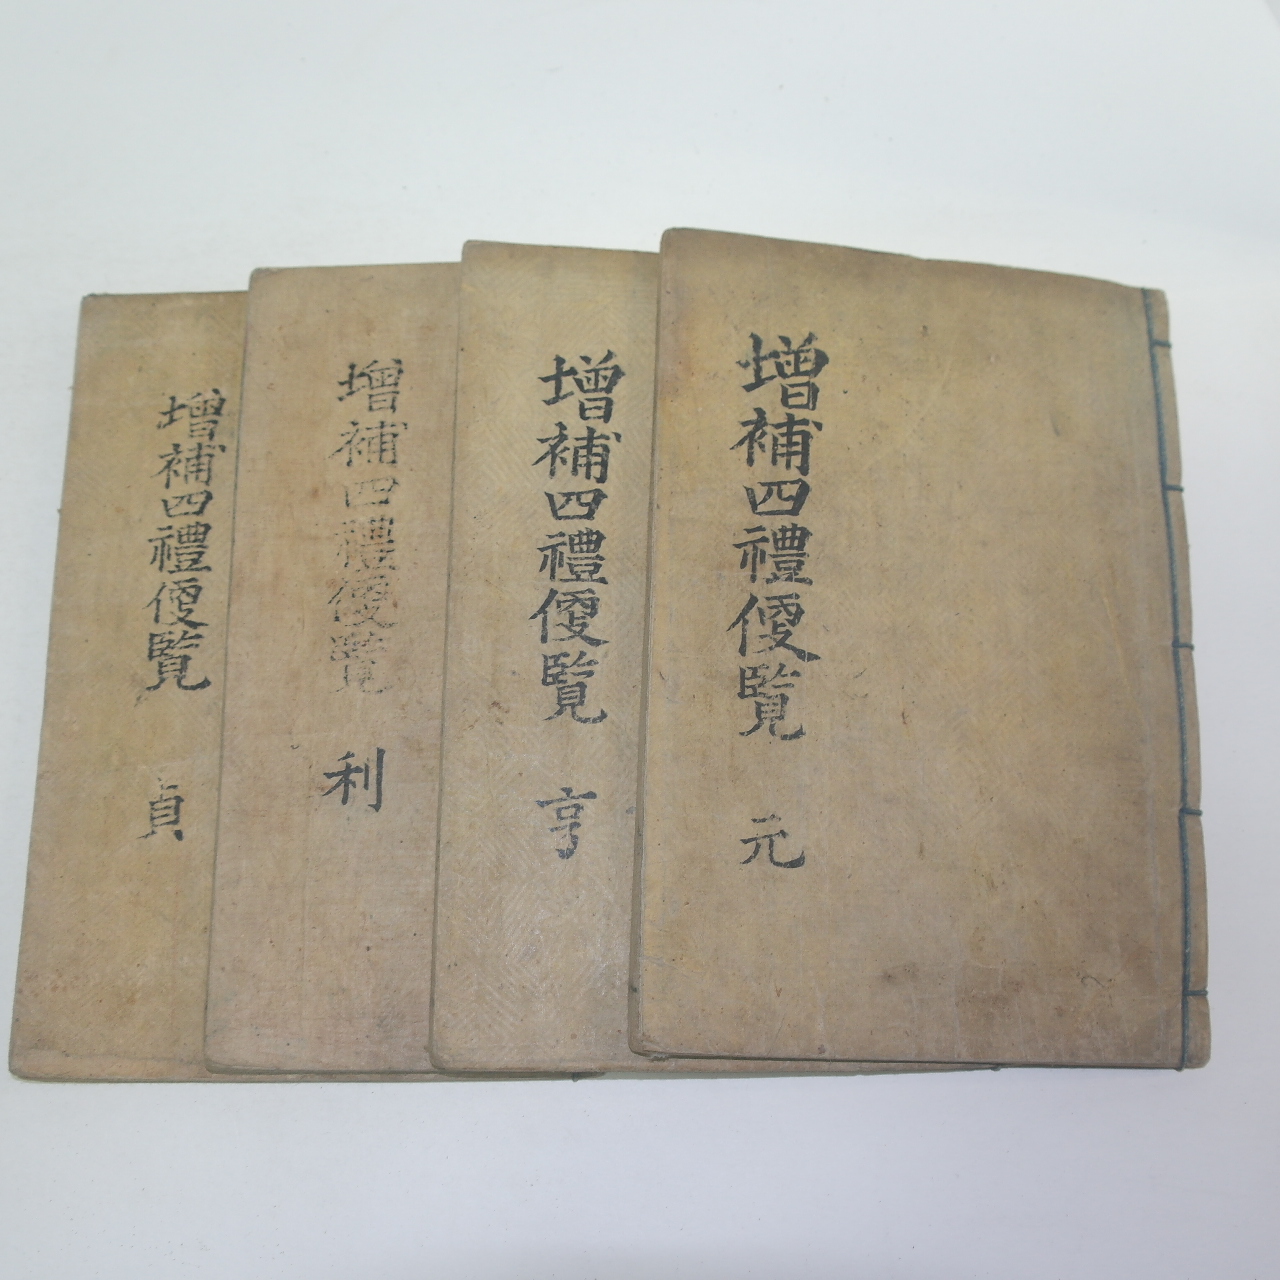 增補四禮便覽 元
增補四禮便覽 亨
增補四禮便覽 利
增補四禮便覽 貞